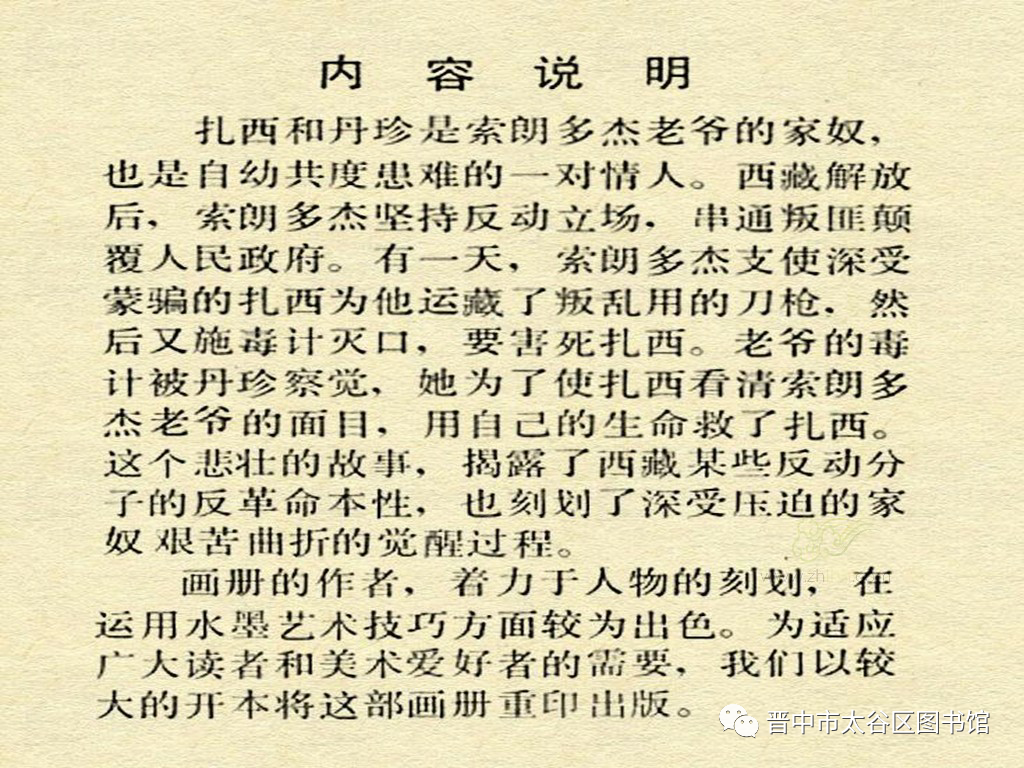 内 容 说 明
扎西和丹珍是索朗多杰老爷的家奴，
也是自幼共度患难的一对情人。西藏解放
后，索朗多杰坚持反动立场，串通叛匪颠
覆人民政府。有一天，索朗多杰支使深受
蒙骗的扎西为他运藏了叛乱用的刀枪，然
后又施毒计灭口，要害死扎西。老爷的毒
计被丹珍察觉，她为了使扎西看清索朗多
杰老爷的面目，用自己的生命救了扎西。
这个悲壮的故事，揭露了西藏某些反动分
子的反革命本性，也刻划了深受压迫的家
奴艰苦曲折的觉醒过程。
画册的作者，着力于人物的刻划，在
运用水墨艺术技巧方面较为出色。为适应
广大读者和美术爱好者的需要，我们以较
大的开本将这部画册重印出版。
晋中市太谷区图书馆